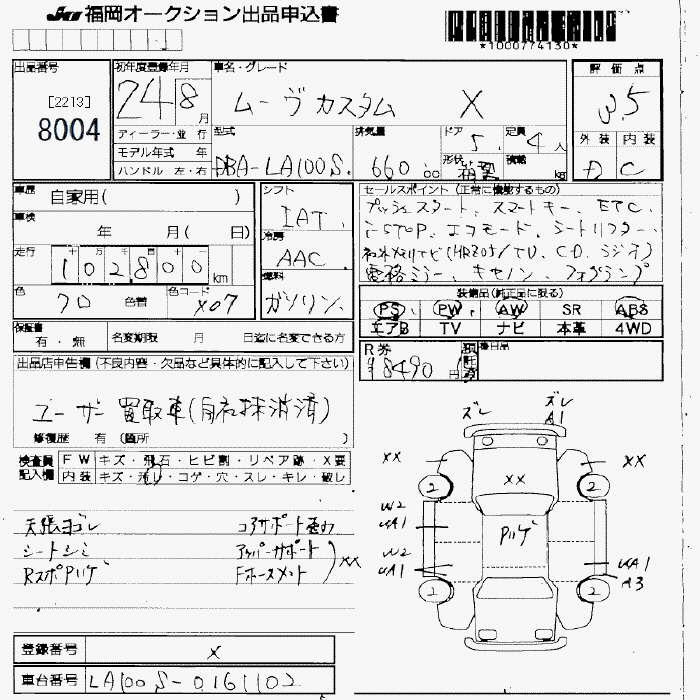 JU 福岡オークション出品申込書
*1000774130*
出品番号 初年度登録年月 車名・グレード 評価点
[2213] 24 8月 ムーヴカスタム X 3.5
8004
ディーラー・並行 型式 排気量 ドア 5 定員 4人 外装 内装
モデル年式 年 DBA-LA100S 660cc D C
ハンドル 左・右 形状 積載 kg
車歴 自家用( ) シフト IAT セールスポイント (正常に機能するもの)
車検 年 月( 日) プッシュスタート、スマートキー、ETC、
冷房 AAC i-STOP、エコモード、シートリフター、
走行 十 万 千 百 十 102800km
燃料 ガソリン 電格ミラー、キセノン、フォグランプ
色 クロ 色替 色コード X07
装備品(純正品に限る)
PS PW AW SR ABS
エアB TV ナビ 本革 4WD
保証書 有・無 名変期限 月 日迄に名変できる方
R券 ¥8490円 預託済 後日品
出品店申告欄 (不良内容・欠品など具体的に記入して下さい)
ユーザー買取車(自社抹消済)
修復歴 有 (箇所 )
検査員記入欄 FW キズ・飛石・ヒビ割・リペア跡・X要
内装 キズ・汚レ・コゲ・穴・スレ・キレ・破レ
天張ヨゴレ コアサポート歪ミ
シートシミ アッパーサポート XX
RスポPリケ゛
ズレ ズレ A1
XX XX
2 XX 2
W2 Pリケ゛
UA1
W2 UA1
UA1 A3
2 2
登録番号 X
車台番号 LA100S-0161102